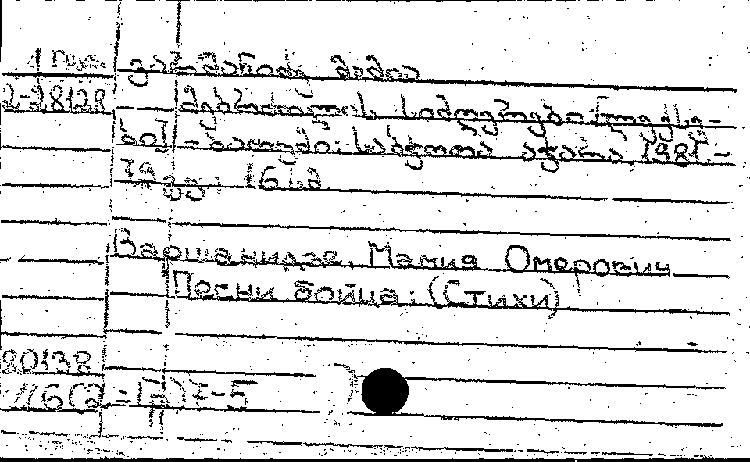 ვარშანიძე მამია
2-28128 მებრძოლის სიმღერები: [ლექსე-
ბი] – ბათუმი: საბჭოთა აჭარა, 1981.–
79 გვ.; 16 სმ
Варшанидзе, Мамия Омерович
Песни бойца: (Стихи)
80138